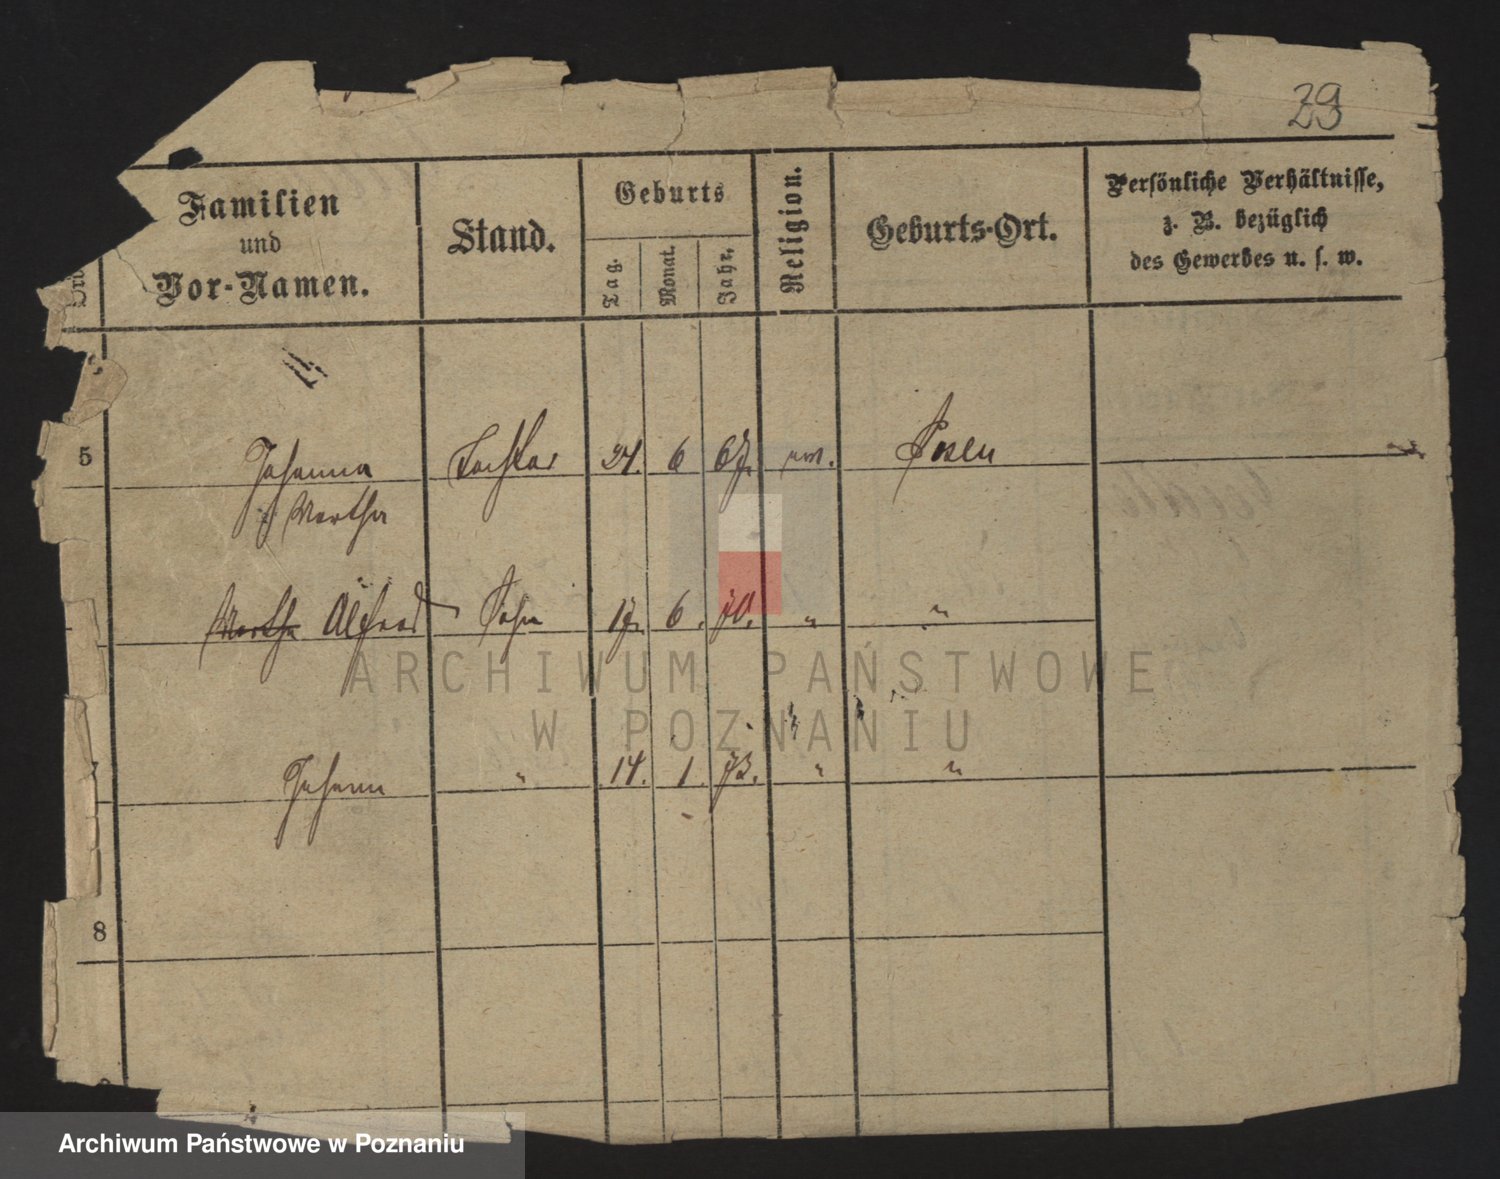 29
Familien
und
Vor-Namen.
Stand.
Geburts
Tag.
Monat.
Jahr.
Religion.
Geburts-Ort.
Persönliche Verhältnisse,
z. B. bezüglich
des Gewerbes u. s. w.
5 Johanna Tochter 24. 6 67. ev. Posen
Martha
Martha Alfred Sohn 17. 6. 70. " "
Johann " 14. 1. 73. " "
8
ARCHIWUM PAŃSTWOWE
W POZNANIU
Archiwum Państwowe w Poznaniu